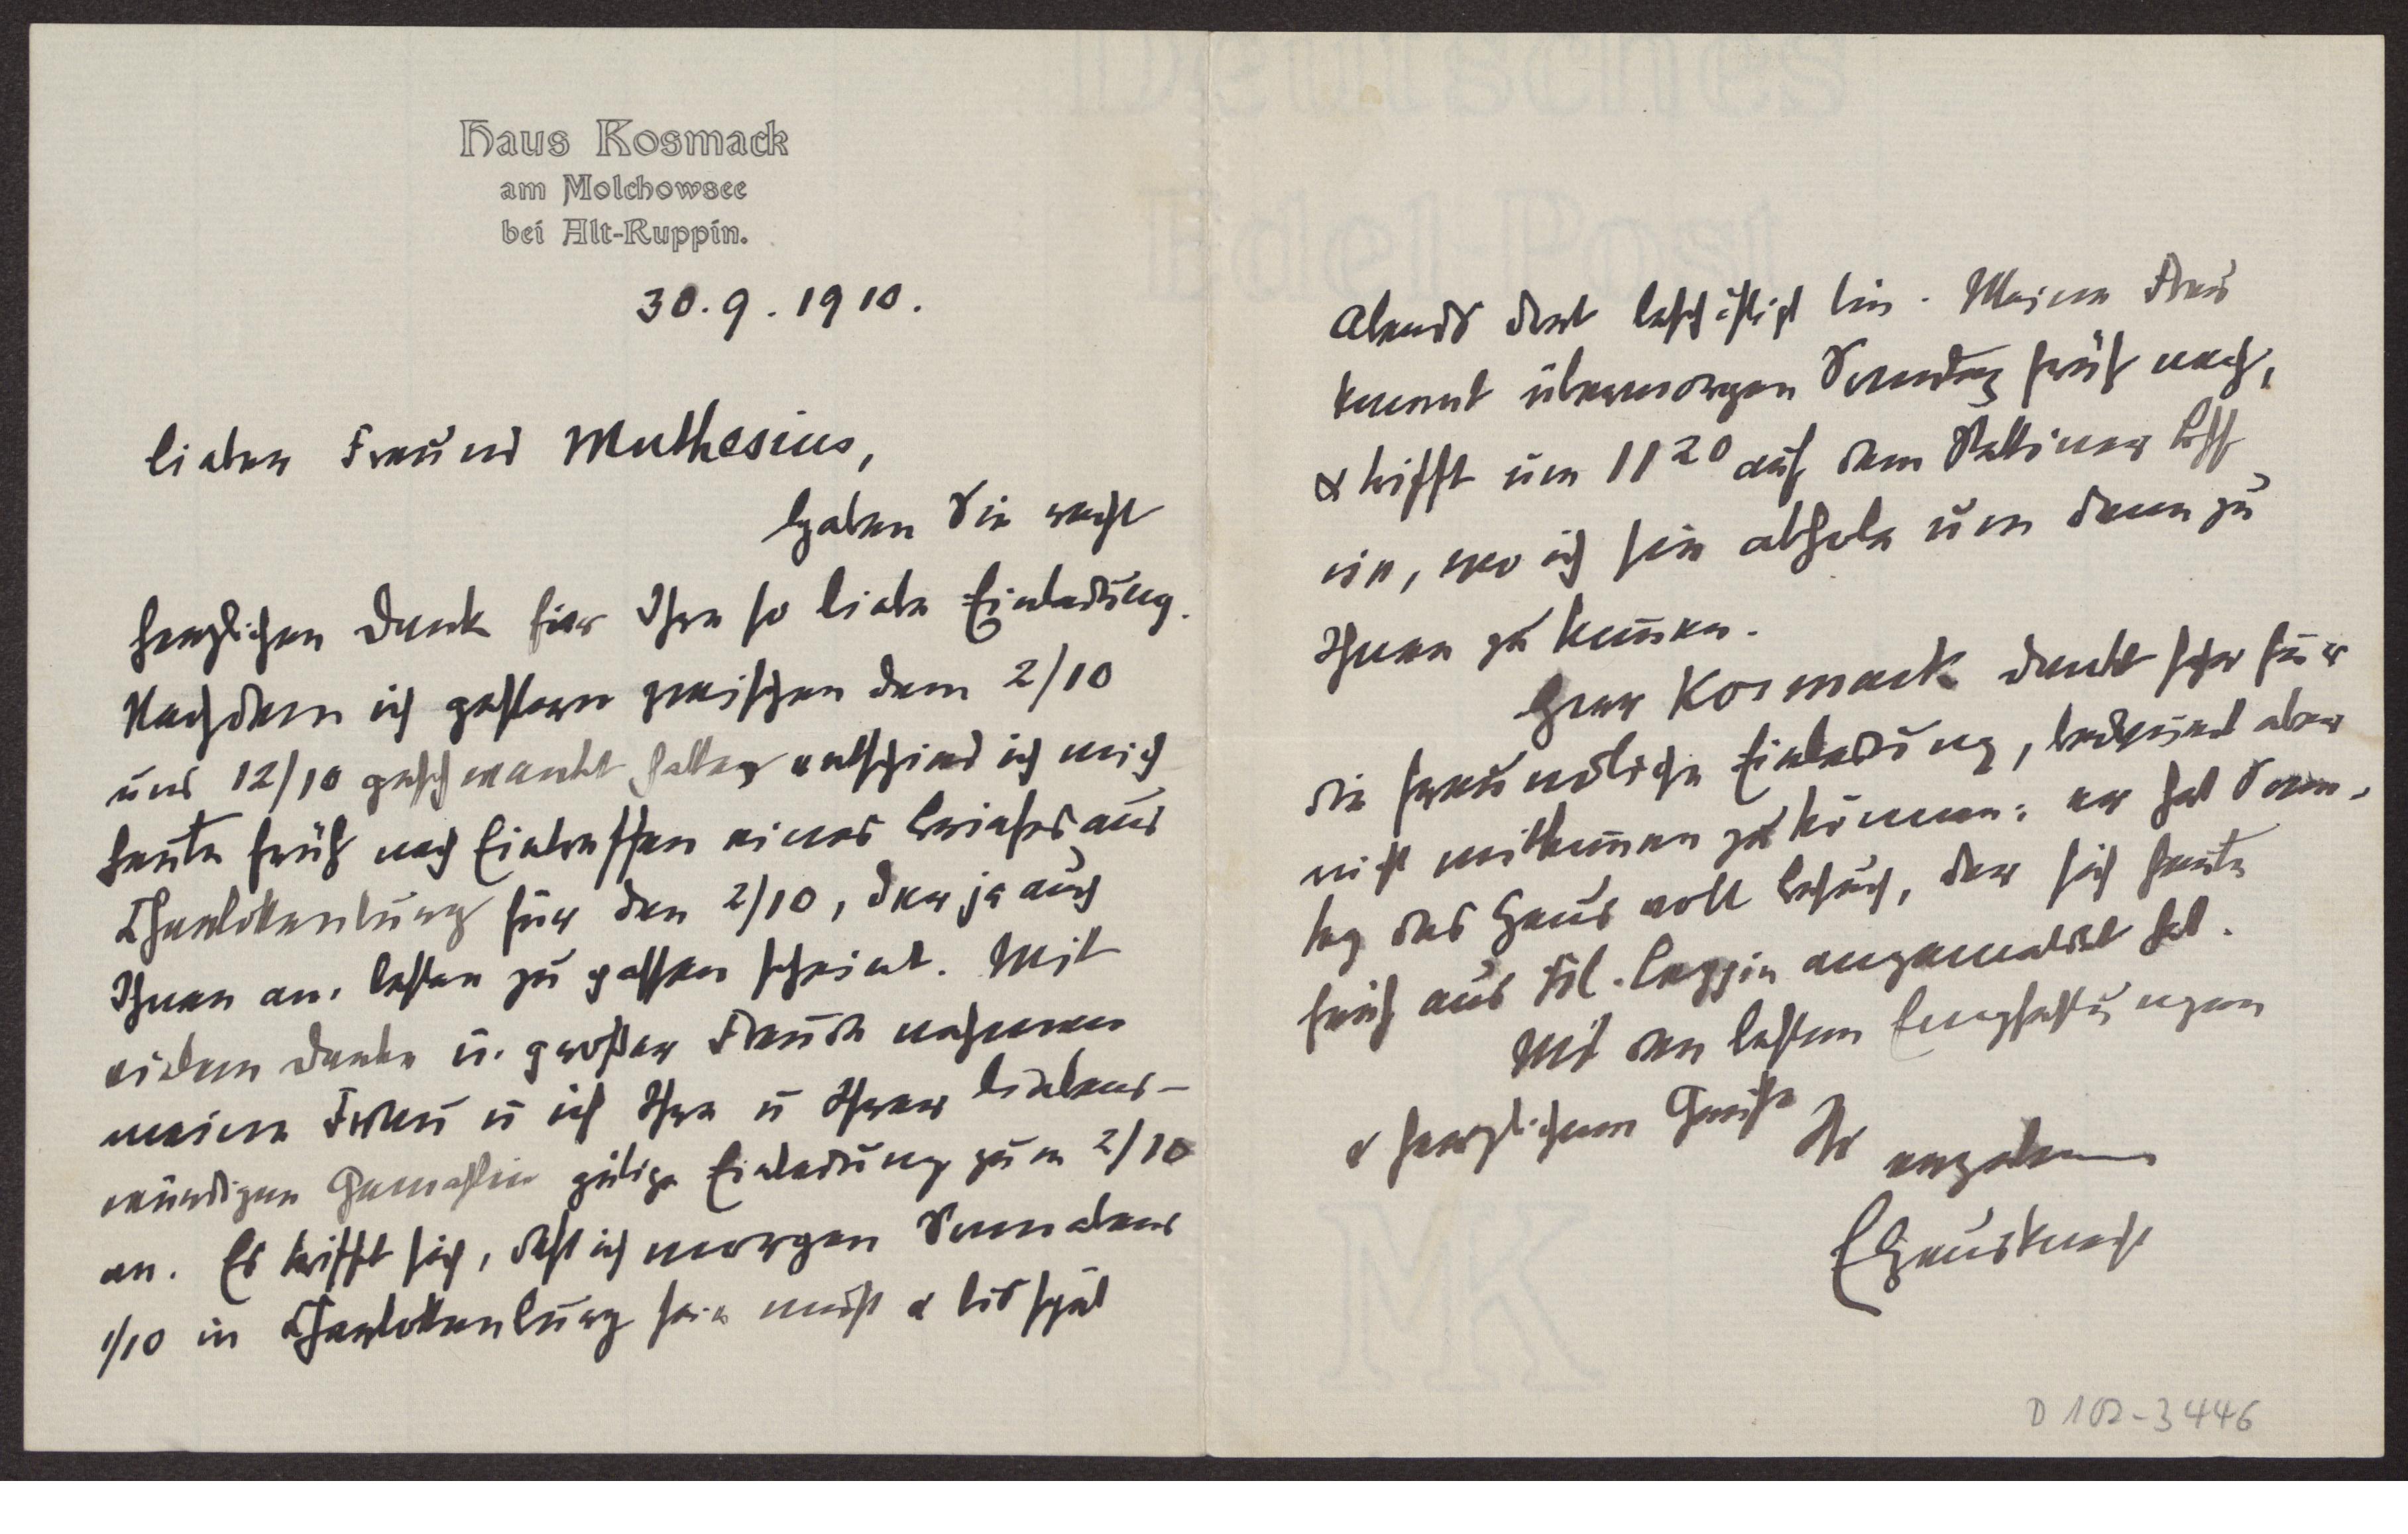 Haus Kosmack
am Molchowsee
bei Alt-Ruppin.
30.9.1910.
lieber Freund Muthesius,
haben Sie recht
herzlichen Dank für Ihre so liebe Einladung.
Nachdem ich gestern zwischen dem 2/10
und 12/10 geschwankt hatte, entschied ich mich
heute früh nach Eintreffen eines Briefes aus
Charlottenburg für den 2/10, der ja auch
Ihnen am besten zu passen scheint. Mit
vielem Danke u. großer Freude nehmen
meine Frau u ich Ihre u Ihrer liebens-
würdigen Gemahlin gütige Einladung zum 2/10
an. Es trifft sich, daß ich morgen Sonnabend
1/10 in Charlottenburg sein muß & bis spät
Abends dort beschäftigt bin. Meine Frau
kommt übermorgen Sonntag früh nach,
& trifft um 11 20 auf dem Stettiner Bhf
ein, wo ich sie abhole um dann zu
Ihnen zu kom̄en.
Herr Kosmack dankt sehr für
die freundliche Einladung, bedauert aber
nicht mitkom̄en zu können: er hat Sonn-
tag das Haus voll Besuch, der sich heute
früh aus angemeldet hat.
Mit den besten Empfehlungen
& herzlichem Gruße
Ihr ergebener
EHausknecht
D 102-3446
Deutsches
Edel Post
MK